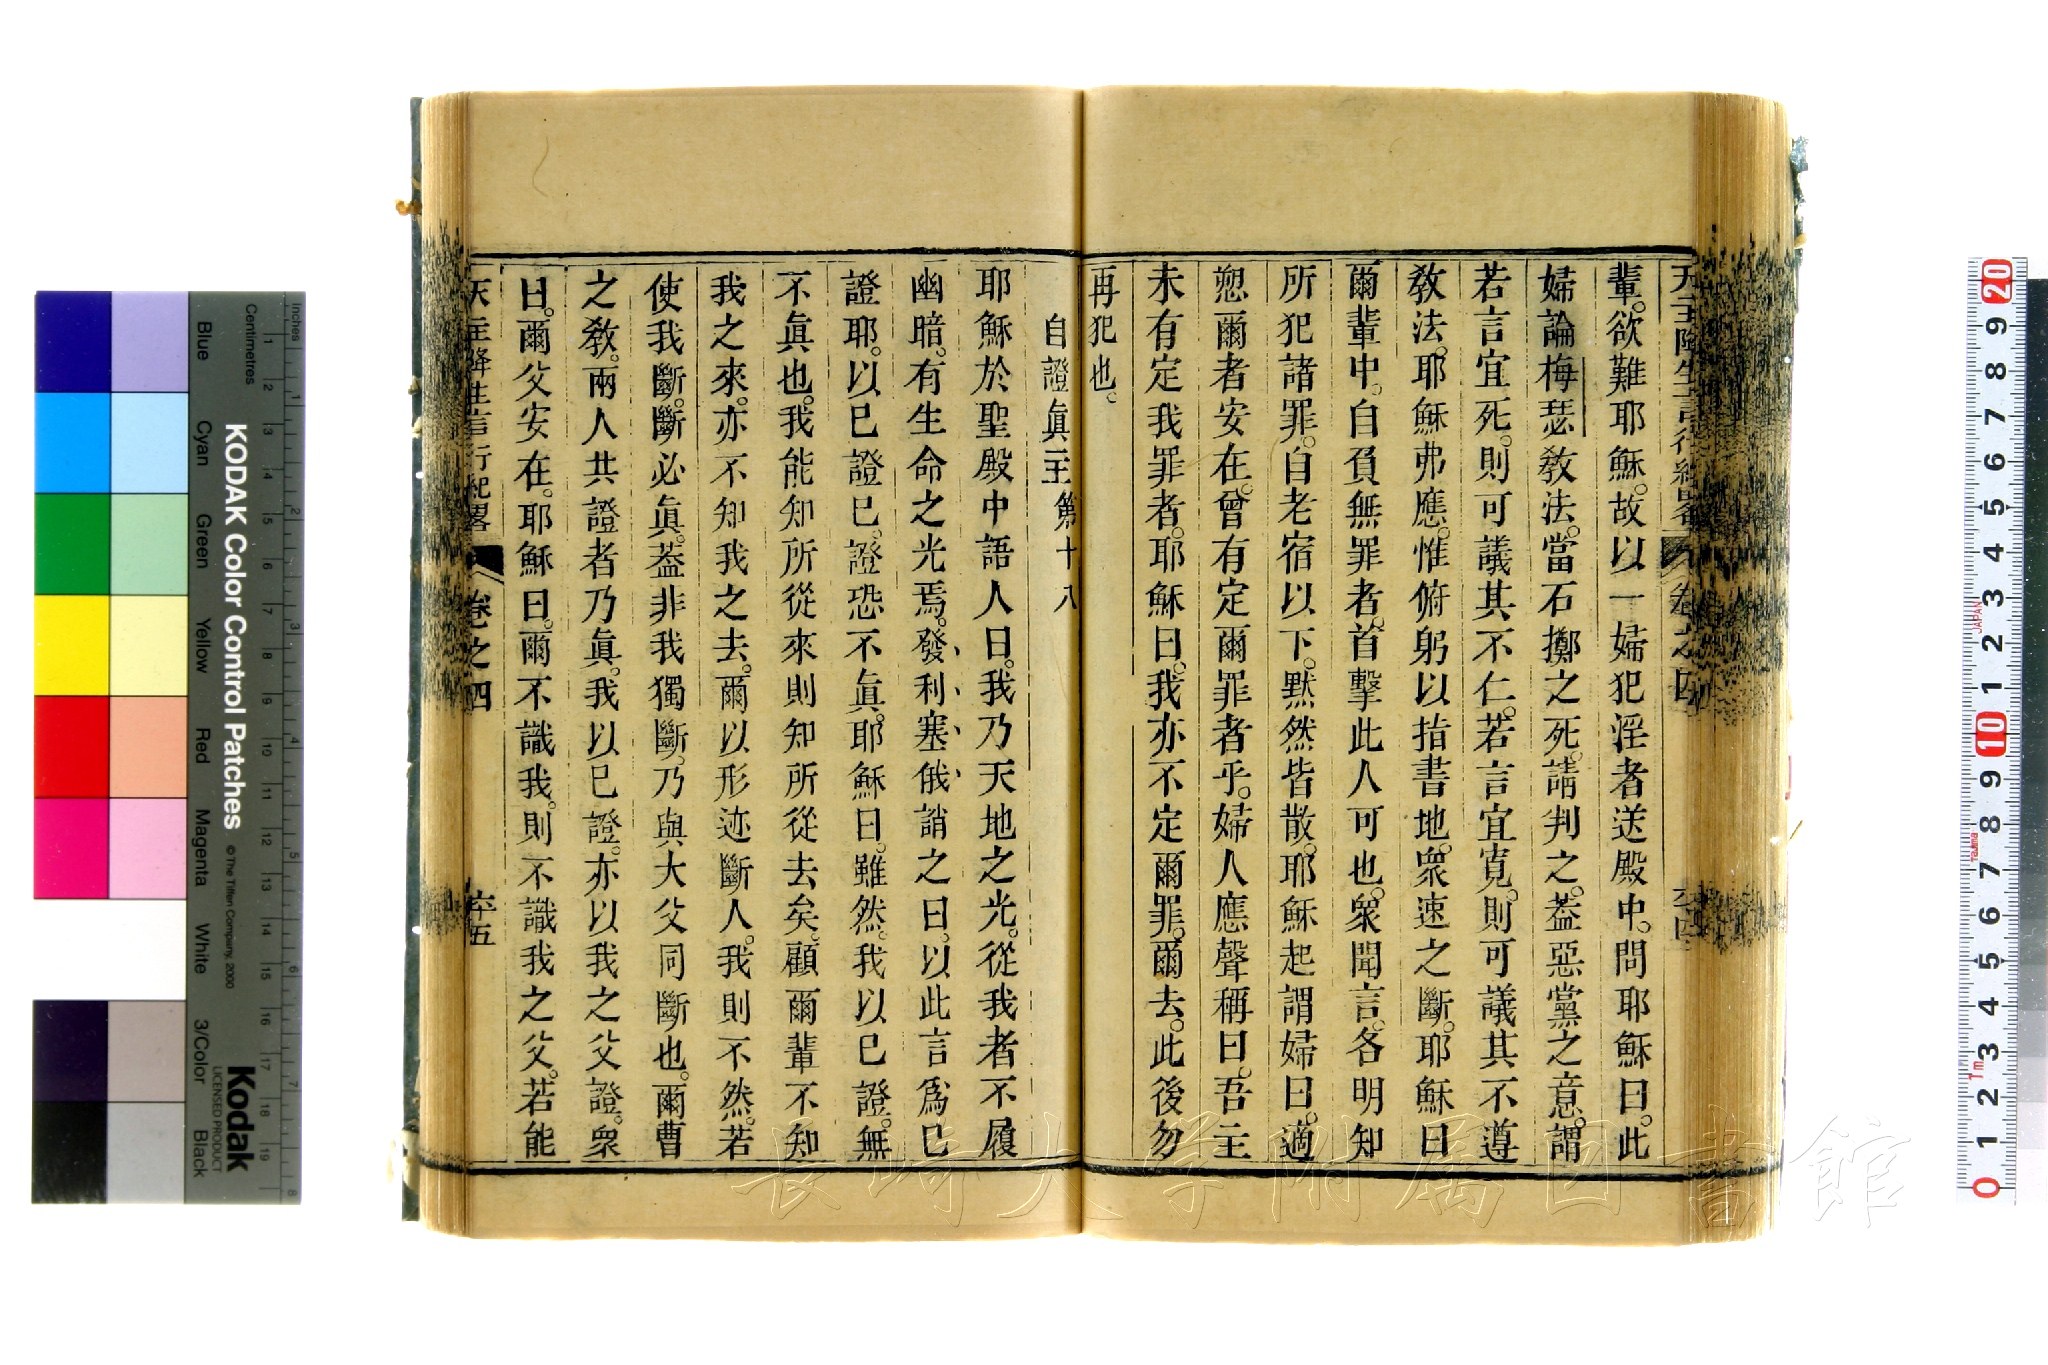 天主降生言行紀畧 卷之四 六十四
輩。欲難耶穌。故以一婦犯淫者送殿中。問耶穌曰。此
婦論梅瑟教法。當石擲之死。請判之。葢惡黨之意。謂
若言宜死。則可議其不仁。若言宜寬。則可議其不遵
教法。耶穌弗應。惟俯躬以指書地。衆速之斷。耶穌曰
爾輩中。自負無罪者。首擊此人可也。衆聞言。各明知
所犯諸罪。自老宿以下。默然皆散。耶穌起謂婦曰。適
愬爾者安在。曾有定爾罪者乎。婦人應聲稱曰。吾主
未有定我罪者。耶穌曰。我亦不定爾罪。爾去。此後勿
再犯也。
自證眞主第十八
耶穌於聖殿中語人曰。我乃天地之光。從我者不履
幽暗。有生命之光焉。發利塞俄誚之曰。以此言爲已
證耶。以已證已。證恐不眞。耶穌曰。雖然。我以已證。無
不眞也。我能知所從來則知所從去矣。顧爾輩不知
我之來。亦不知我之去。爾以形迹斷人。我則不然。若
使我斷。斷必眞。葢非我獨斷。乃與大父同斷也。爾曹
之教。兩人共證者乃眞。我以已證。亦以我之父證。衆
曰。爾父安在。耶穌曰。爾不識我。則不識我之父。若能
天主降生言行紀畧 卷之四 六十五
KODAK Color Control Patches
© The Tiffen Company, 2000
Kodak
LICENSED PRODUCT
inches
Centimetres
Blue
Cyan
Green
Yellow
Red
Magenta
White
3/Color
Black
長崎大学附属図書館